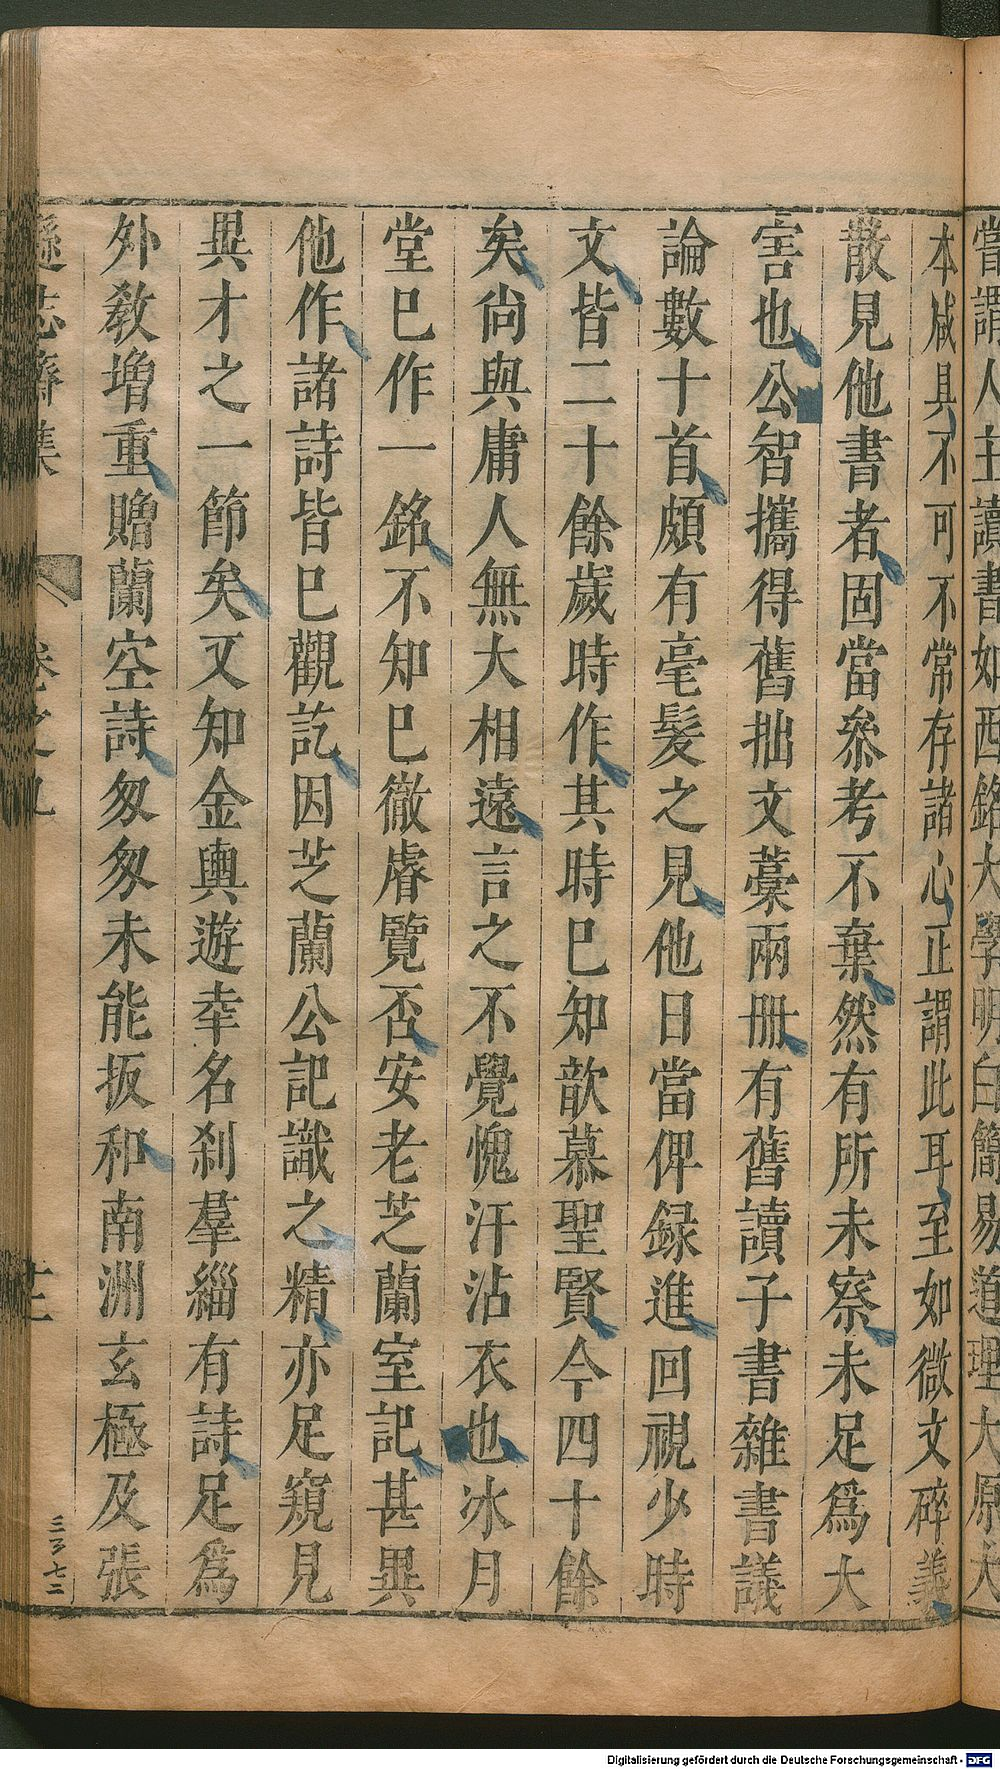 嘗謂人主讀書如西銘大學明白簡易道理大原大
本咸具不可不常存諸心正謂此耳至如微文碎義
散見他書者固當叅考不棄然有所未察未足爲大
害也公智攜得舊拙文藁兩册有舊讀子書雜書議
論數十首頗有毫髮之見他日當俾録進回視少時
文皆二十餘歲時作其時巳知歆慕聖賢今四十餘
矣尙與庸人無大相遠言之不覺愧汗沾衣也冰月
堂巳作一銘不知巳徹睿覽否安老芝蘭室記甚異
他作諸詩皆巳觀訖因芝蘭公記識之精亦足窺見
異才之一節矣又知金輿遊幸名刹羣緇有詩足爲
外敎增重贈蘭空詩匆匆未能扳和南洲玄極及張
遜志齋集 卷之九 十二
三百七二
Digitalisierung gefördert durch die Deutsche Forschungsgemeinschaft - DFG